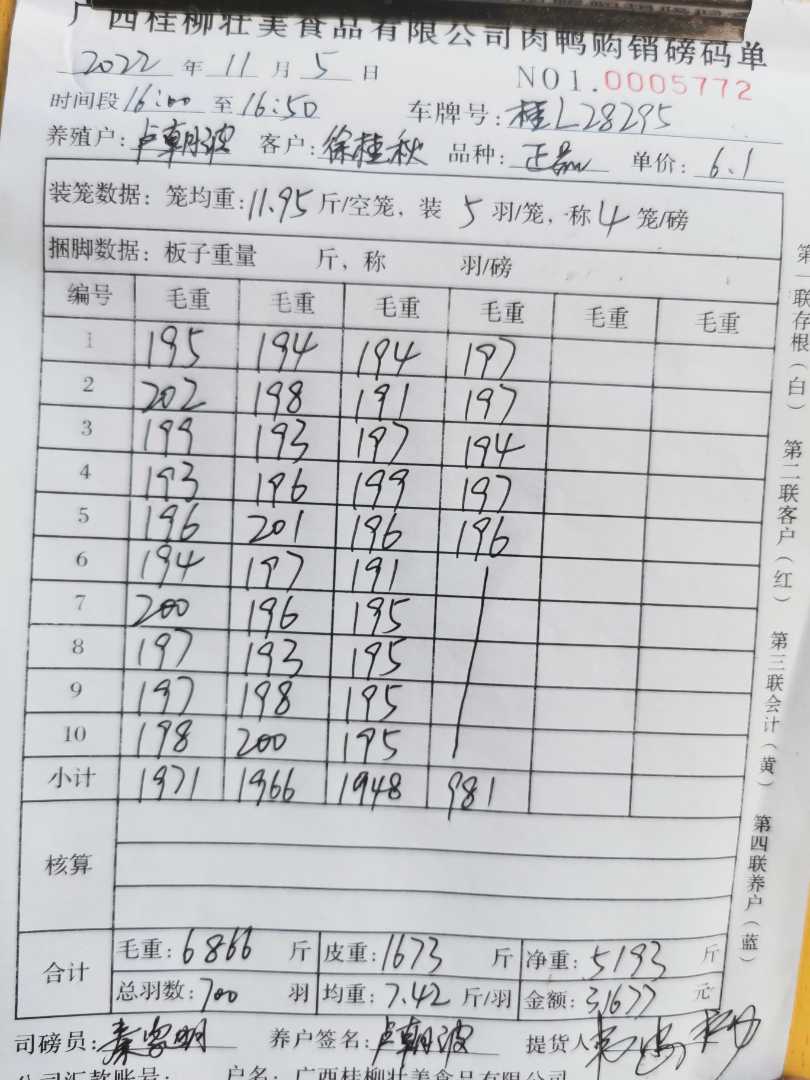 广西桂柳壮美食品有限公司肉鸭购销磅码单
2022 年 11 月 5 日 NO1.0005772
时间段 16:00 至 16:50 车牌号: 桂L28295
养殖户: 卢朝波 客户: 徐桂秋 品种: 正品 单价: 6.1
装笼数据: 笼均重: 11.95 斤/空笼, 装 5 羽/笼, 称 4 笼/磅
捆脚数据: 板子重量 斤, 称 羽/磅
编号 毛重 毛重 毛重 毛重 毛重 毛重
1 195 194 194 197
2 202 198 191 197
3 199 193 197 194
4 193 196 199 197
5 196 201 196 196
6 194 197 191
7 200 196 195
8 197 193 195
9 197 198 195
10 198 200 195
小计 1971 1966 1948 981
核算
合计 毛重: 6866 斤 皮重: 1673 斤 净重: 5193 斤
总羽数: 700 羽 均重: 7.42 斤/羽 金额: 31677 元
司磅员: 秦家明 养户签名: 卢朝波 提货人
公司汇款账号: 户名: 广西桂柳壮美食品有限公司
第一联存根(白) 第二联客户(红) 第三联会计(黄) 第四联养户(蓝)